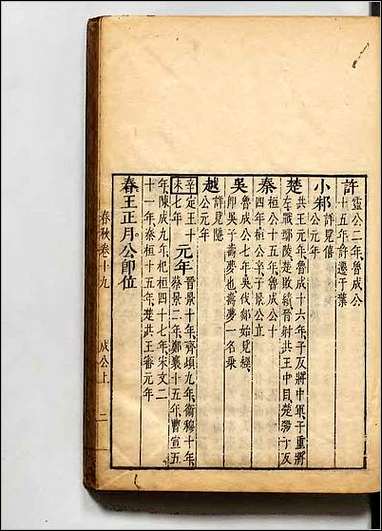 許 靈公二年魯成公
十五年許遷于葉
小邾 詳見僖
公元年
楚 共王元年魯成十六年子反將中軍子重將
左戰鄢陵楚敗績晉射共王中目楚殺子反
秦 桓公十五年魯成公十
四年桓公卒子景公立
吳 魯成公七年吳伐郯始見經
即吳子壽夢也壽夢一名乗
越 詳見隱
公元年
辛未 定王十七年 元年 晉景十年齊頃九年衛穆十年
蔡景二年鄭襄十五年曹宣五
年陳成九年杞桓四十七年宋文二
十一年秦桓十五年楚共王審元年
春王正月公即位
春秋卷十九 成公上 二